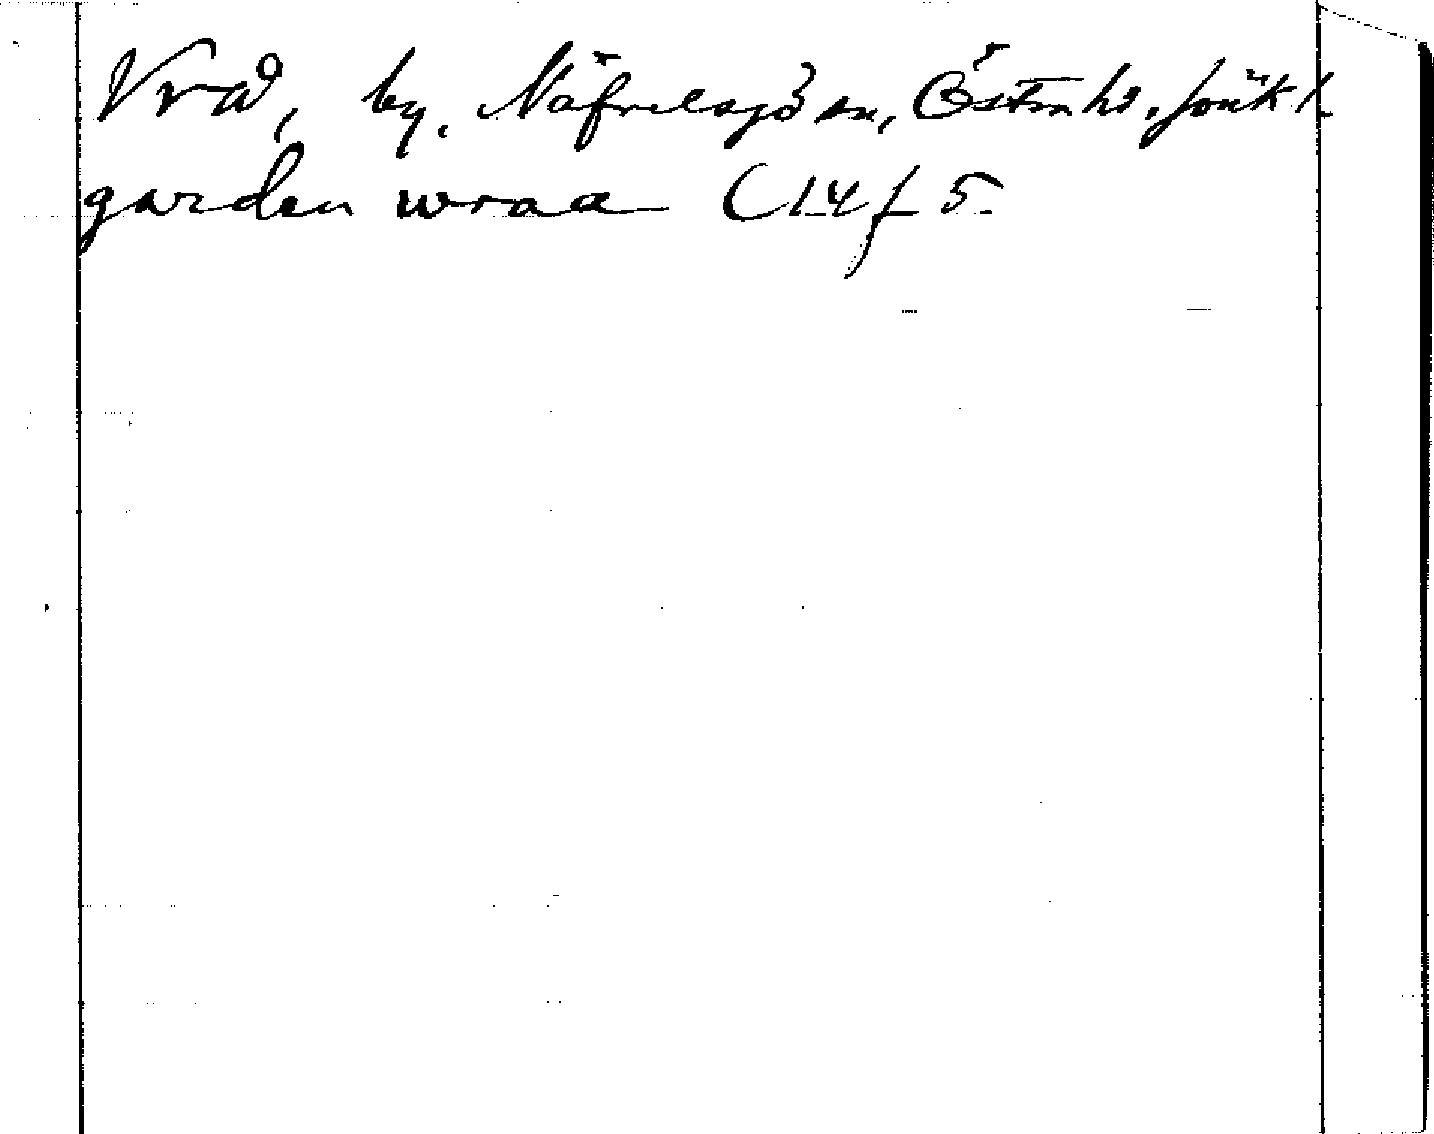 Vrå, by. Näfvelsjö sn, Östra hd, Jönk l.
garden wraa C 14 f 5